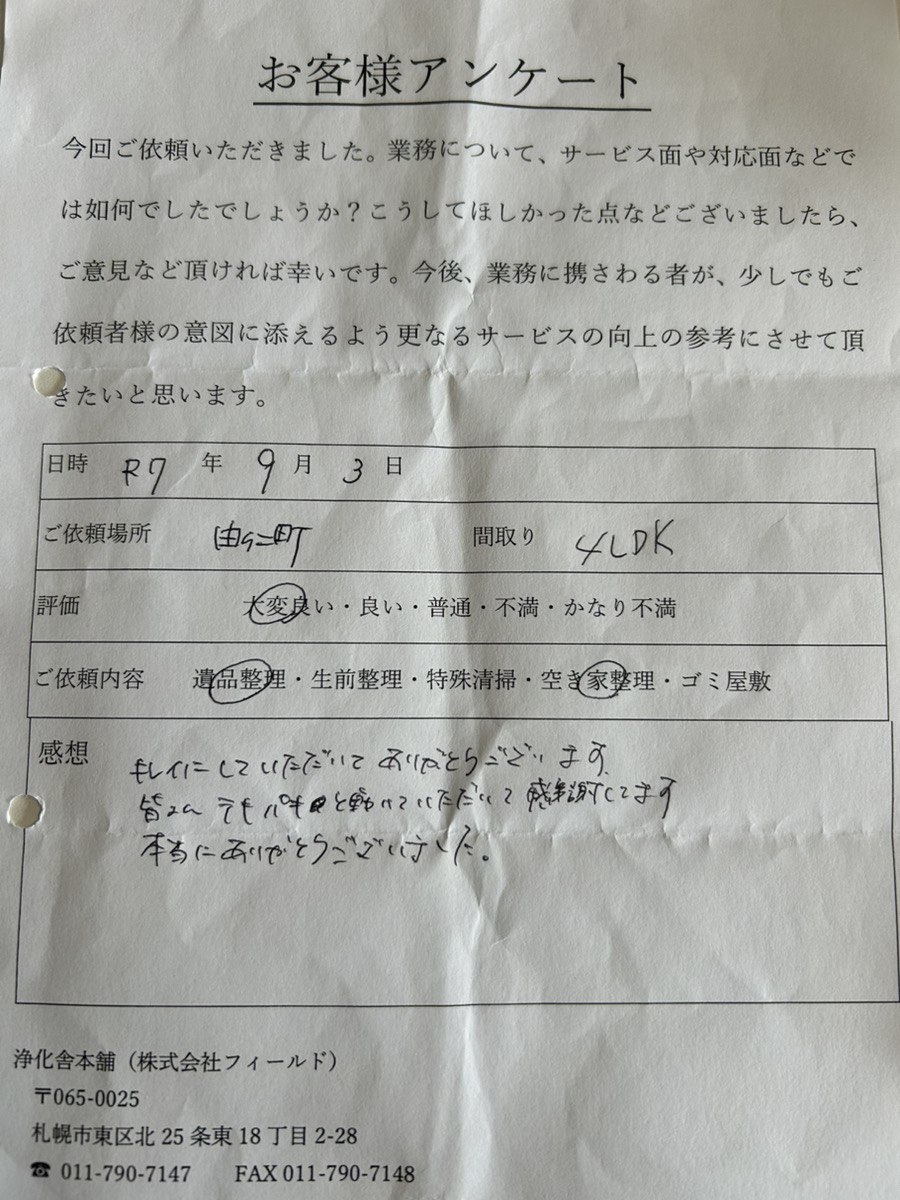 お客様アンケート
今回ご依頼いただきました。業務について、サービス面や対応面などで
は如何でしたでしょうか？こうしてほしかった点などございましたら、
ご意見など頂ければ幸いです。今後、業務に携さわる者が、少しでもご
依頼者様の意図に添えるよう更なるサービスの向上の参考にさせて頂
きたいと思います。
日時 R7 年 9 月 3 日
ご依頼場所 由仁町 間取り 4LDK
評価 大変良い・良い・普通・不満・かなり不満
ご依頼内容 遺品整理・生前整理・特殊清掃・空き家整理・ゴミ屋敷
感想 キレイにしていただいてありがとうございます
皆さん と動いていただいて感謝してます
本当にありがとうございました。
浄化舎本舗（株式会社フィールド）
〒065-0025
札幌市東区北 25 条東 18 丁目 2-28
☎ 011-790-7147 FAX 011-790-7148